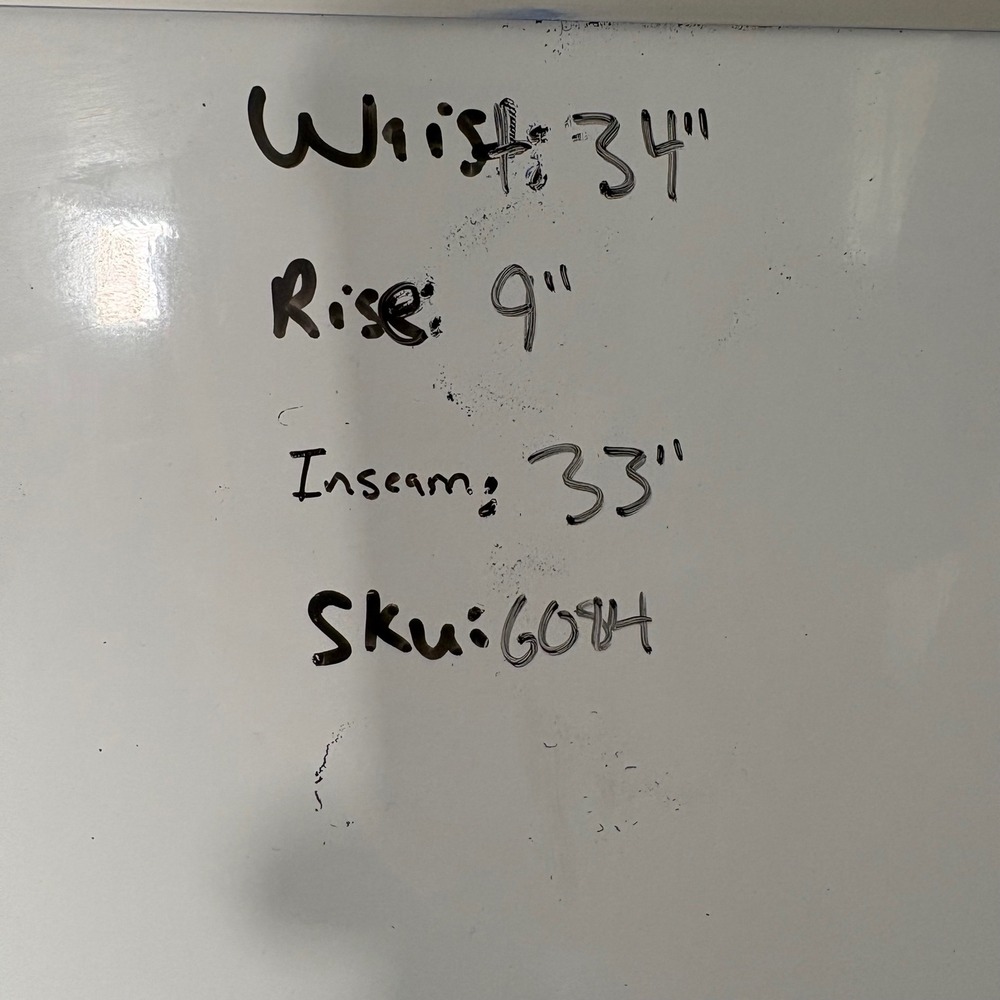 Waist: 34"
Rise: 9"
Inseam: 33"
Sku: 6084